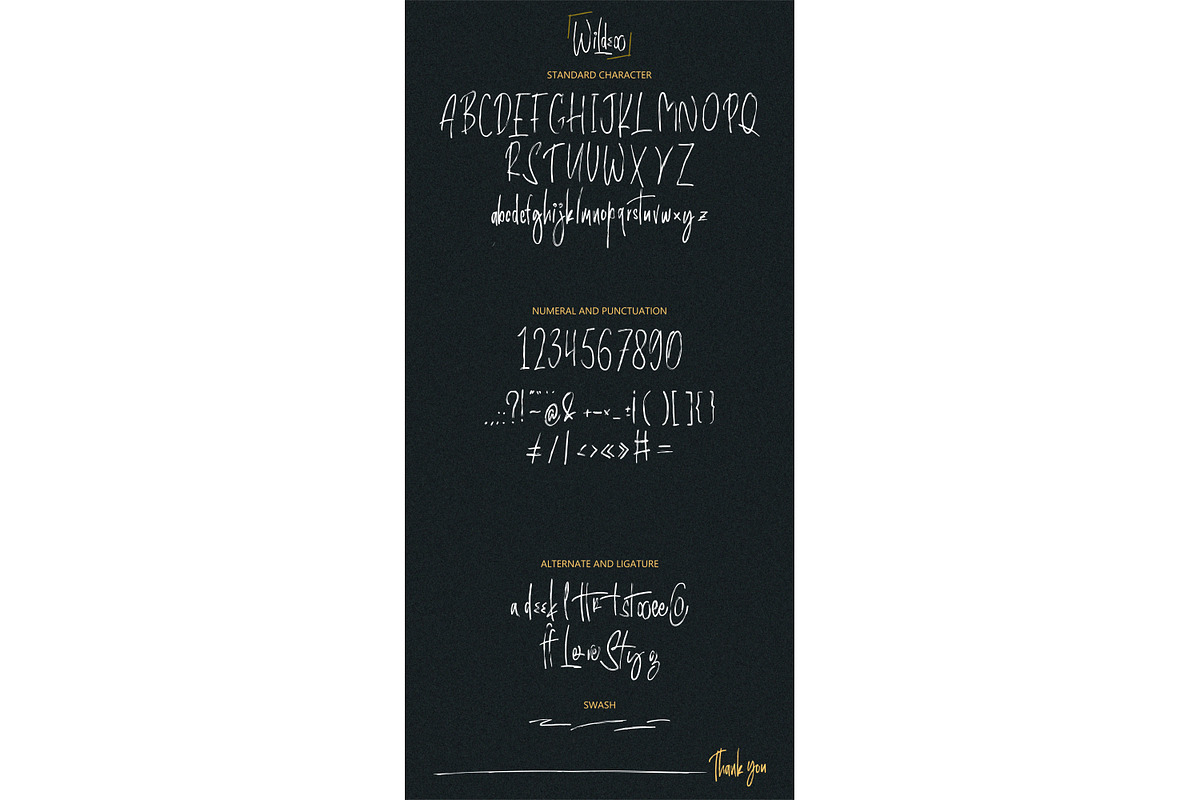 Wildeoo
STANDARD CHARACTER
ABCDEFGHIJKLMNOPQ
RSTUVWXYZ
abcdefghijklmnopqrstuvwxyz
NUMERAL AND PUNCTUATION
1234567890
.,;:?!~@& +−×_±¡()[]{}
≠/|<>«»#=
ALTERNATE AND LIGATURE
SWASH
Thank you